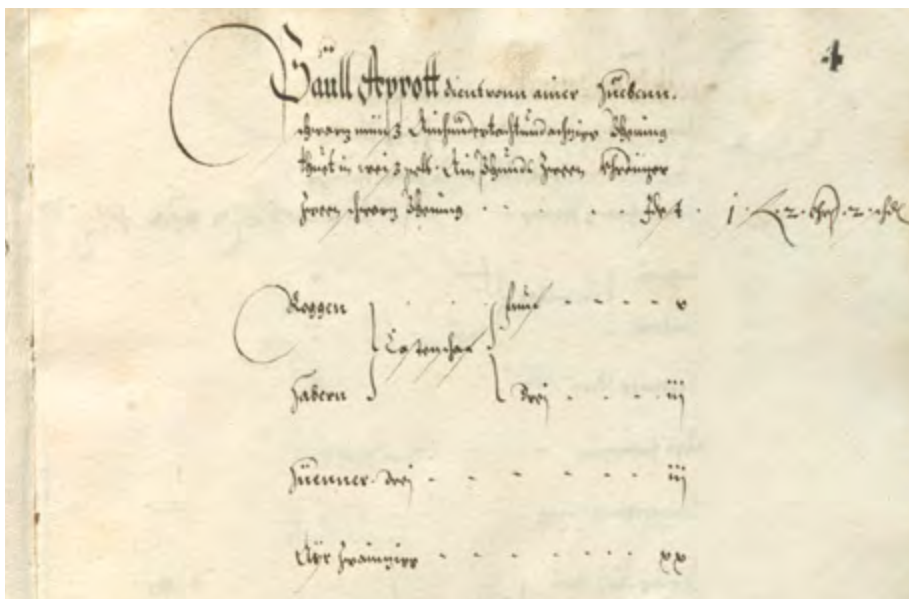 4
Päull Appott dient vonn ainer Huebenn.
schwarz münz Ainhundertachtundachzigg Phening
thuet in weis gelt. Ain Phundt zween Khreuzer
zween schwarz Phening . . . . Idest . 1 . 2 . 2
Roggen fünf v
Castenschaf
Habern drei iij
Hüenner. drei iij
Ayr zwainzigg xx